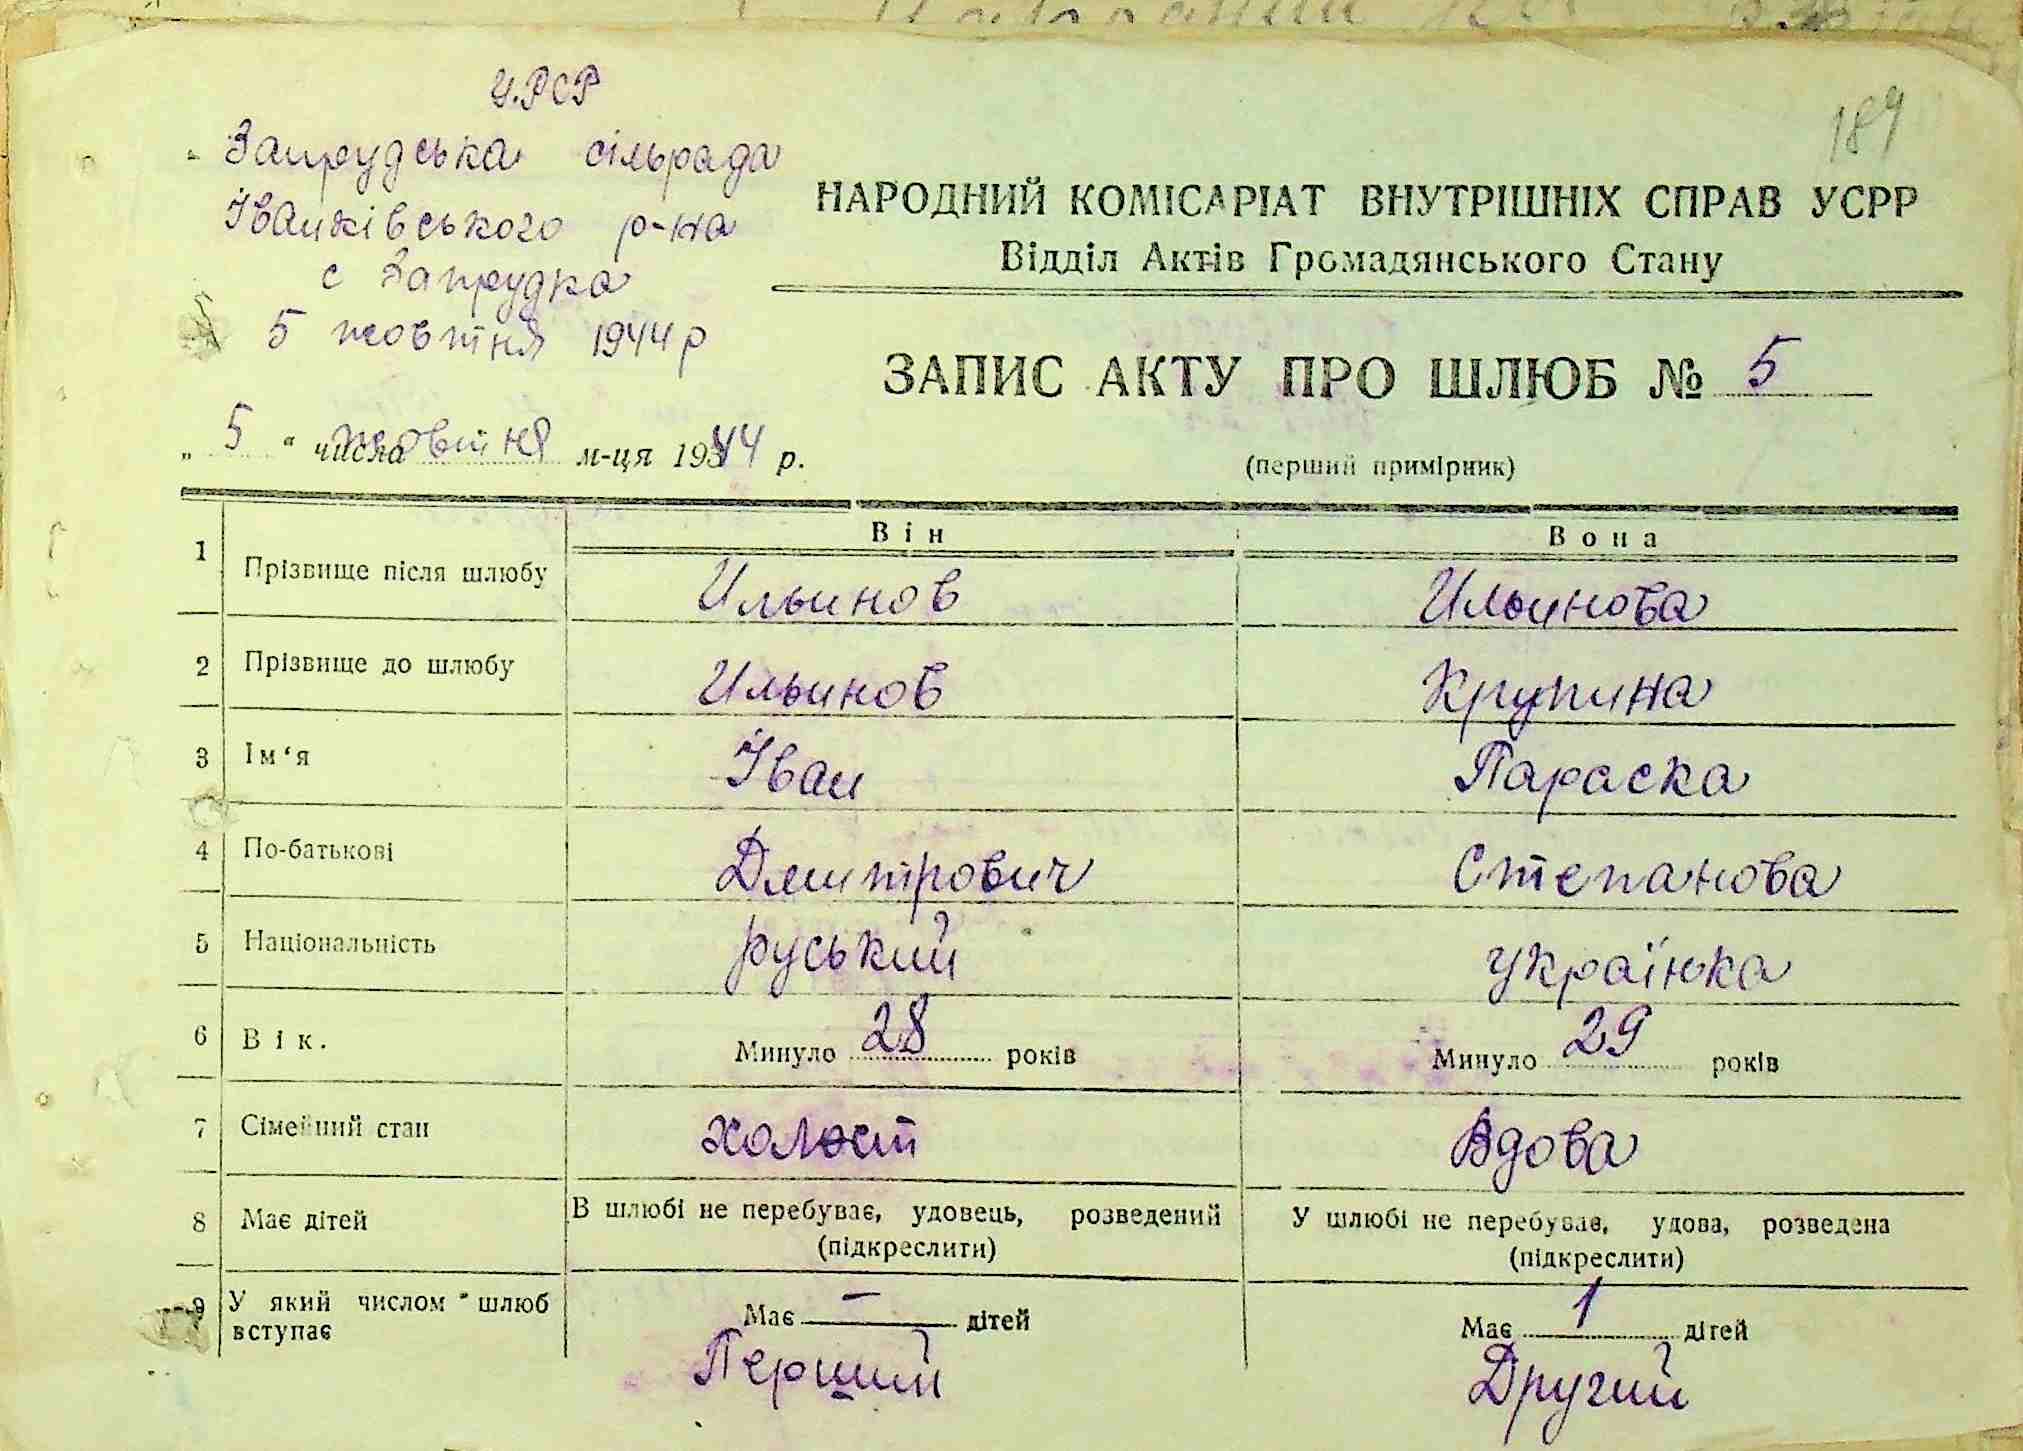 У.РСР
Запрудська сільрада
Іванківського р-на
с Запрудка
5 жовтня 1944 р
189
НАРОДНИЙ КОМІСАРІАТ ВНУТРІШНІХ СПРАВ УСРР
Відділ Актів Громадянського Стану
ЗАПИС АКТУ ПРО ШЛЮБ № 5
„ 5 “ числа жовтня м-ця 1944 р.
(перший примірник)
Він Вона
1 Прізвище після шлюбу Ильинов Ильинова
2 Прізвище до шлюбу Ильинов Крупина
3 Ім‘я Іван Параска
4 По-батькові Дмитрович Степанова
5 Національність руський українка
6 Вік. Минуло 28 років Минуло 29 років
7 Сімейний стан холост Вдова
8 Має дітей В шлюбі не перебуває, удовець, розведений У шлюбі не перебуває, удова, розведена
(підкреслити) (підкреслити)
9 У який числом шлюб Має — дітей Має 1 дітей
вступає Перший Другий